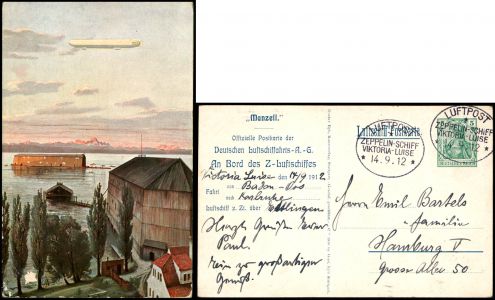 "Manzell."
Offizielle Postkarte der
Deutschen Luftschiffahrts-A.-G.
An Bord des Z-Luftschiffes
Victoria Luise den 14/9 1912
von Baden-Oos
Fahrt nach Karlsruhe
Luftschiff z. Zt. über Ettlingen
Herzl. Grüße Euer
Paul.
Mein zu großartiger
Genuß.
LUFTPOST
ZEPPELIN-SCHIFF
VIKTORIA-LUISE
* 14.9.12 *
LUFTPOST
ZEPPELIN-SCHIFF
VIKTORIA-LUISE
14.9.12
5
Herrn Emil Bartels
Familie
Hamburg V
Grosse Allee 50